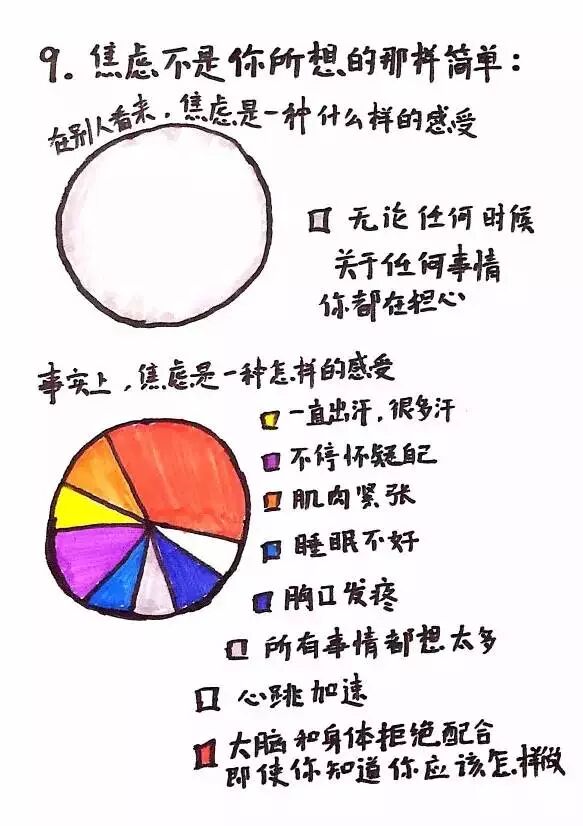 9. 焦虑不是你所想的那样简单：
在别人看来，焦虑是一种什么样的感受
无论任何时候
关于任何事情
你都在担心
事实上，焦虑是一种怎样的感受
一直出汗，很多汗
不停怀疑自己
肌肉紧张
睡眠不好
胸口发疼
所有事情都想太多
心跳加速
大脑和身体拒绝配合
即使你知道你应该怎样做